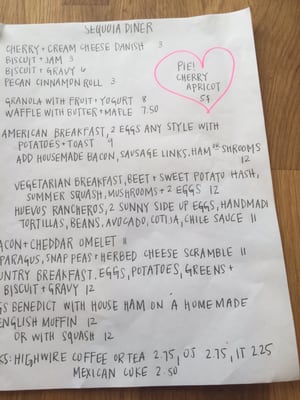 SEQUOIA DINER
CHERRY + CREAM CHEESE DANISH 3
BISCUIT + JAM 3
BISCUIT + GRAVY 6
PECAN CINNAMON ROLL 3
PIE!
CHERRY
APRICOT
5-
GRANOLA WITH FRUIT + YOGURT 8
WAFFLE WITH BUTTER + MAPLE 7.50
AMERICAN BREAKFAST, 2 EGGS ANY STYLE WITH
POTATOES + TOAST 9
ADD HOUSEMADE BACON, SAUSAGE LINKS, HAM OR SHROOMS
12
VEGETARIAN BREAKFAST, BEET + SWEET POTATO HASH,
SUMMER SQUASH, MUSHROOMS + 2 EGGS 12
HUEVOS RANCHEROS, 2 SUNNY SIDE UP EGGS, HANDMADE
TORTILLAS, BEANS, AVOCADO, COTIJA, CHILE SAUCE 11
ACON + CHEDDAR OMELET 11
PARAGUS, SNAP PEAS + HERBED CHEESE SCRAMBLE 11
UNTRY BREAKFAST. EGGS, POTATOES, GREENS +
BISCUIT + GRAVY 12
GS BENEDICT WITH HOUSE HAM ON A HOMEMADE
ENGLISH MUFFIN 12
OR WITH SQUASH 12
KS: HIGHWIRE COFFEE OR TEA 2.75, OJ 2.75, IT 2.25
MEXICAN COKE 2.50